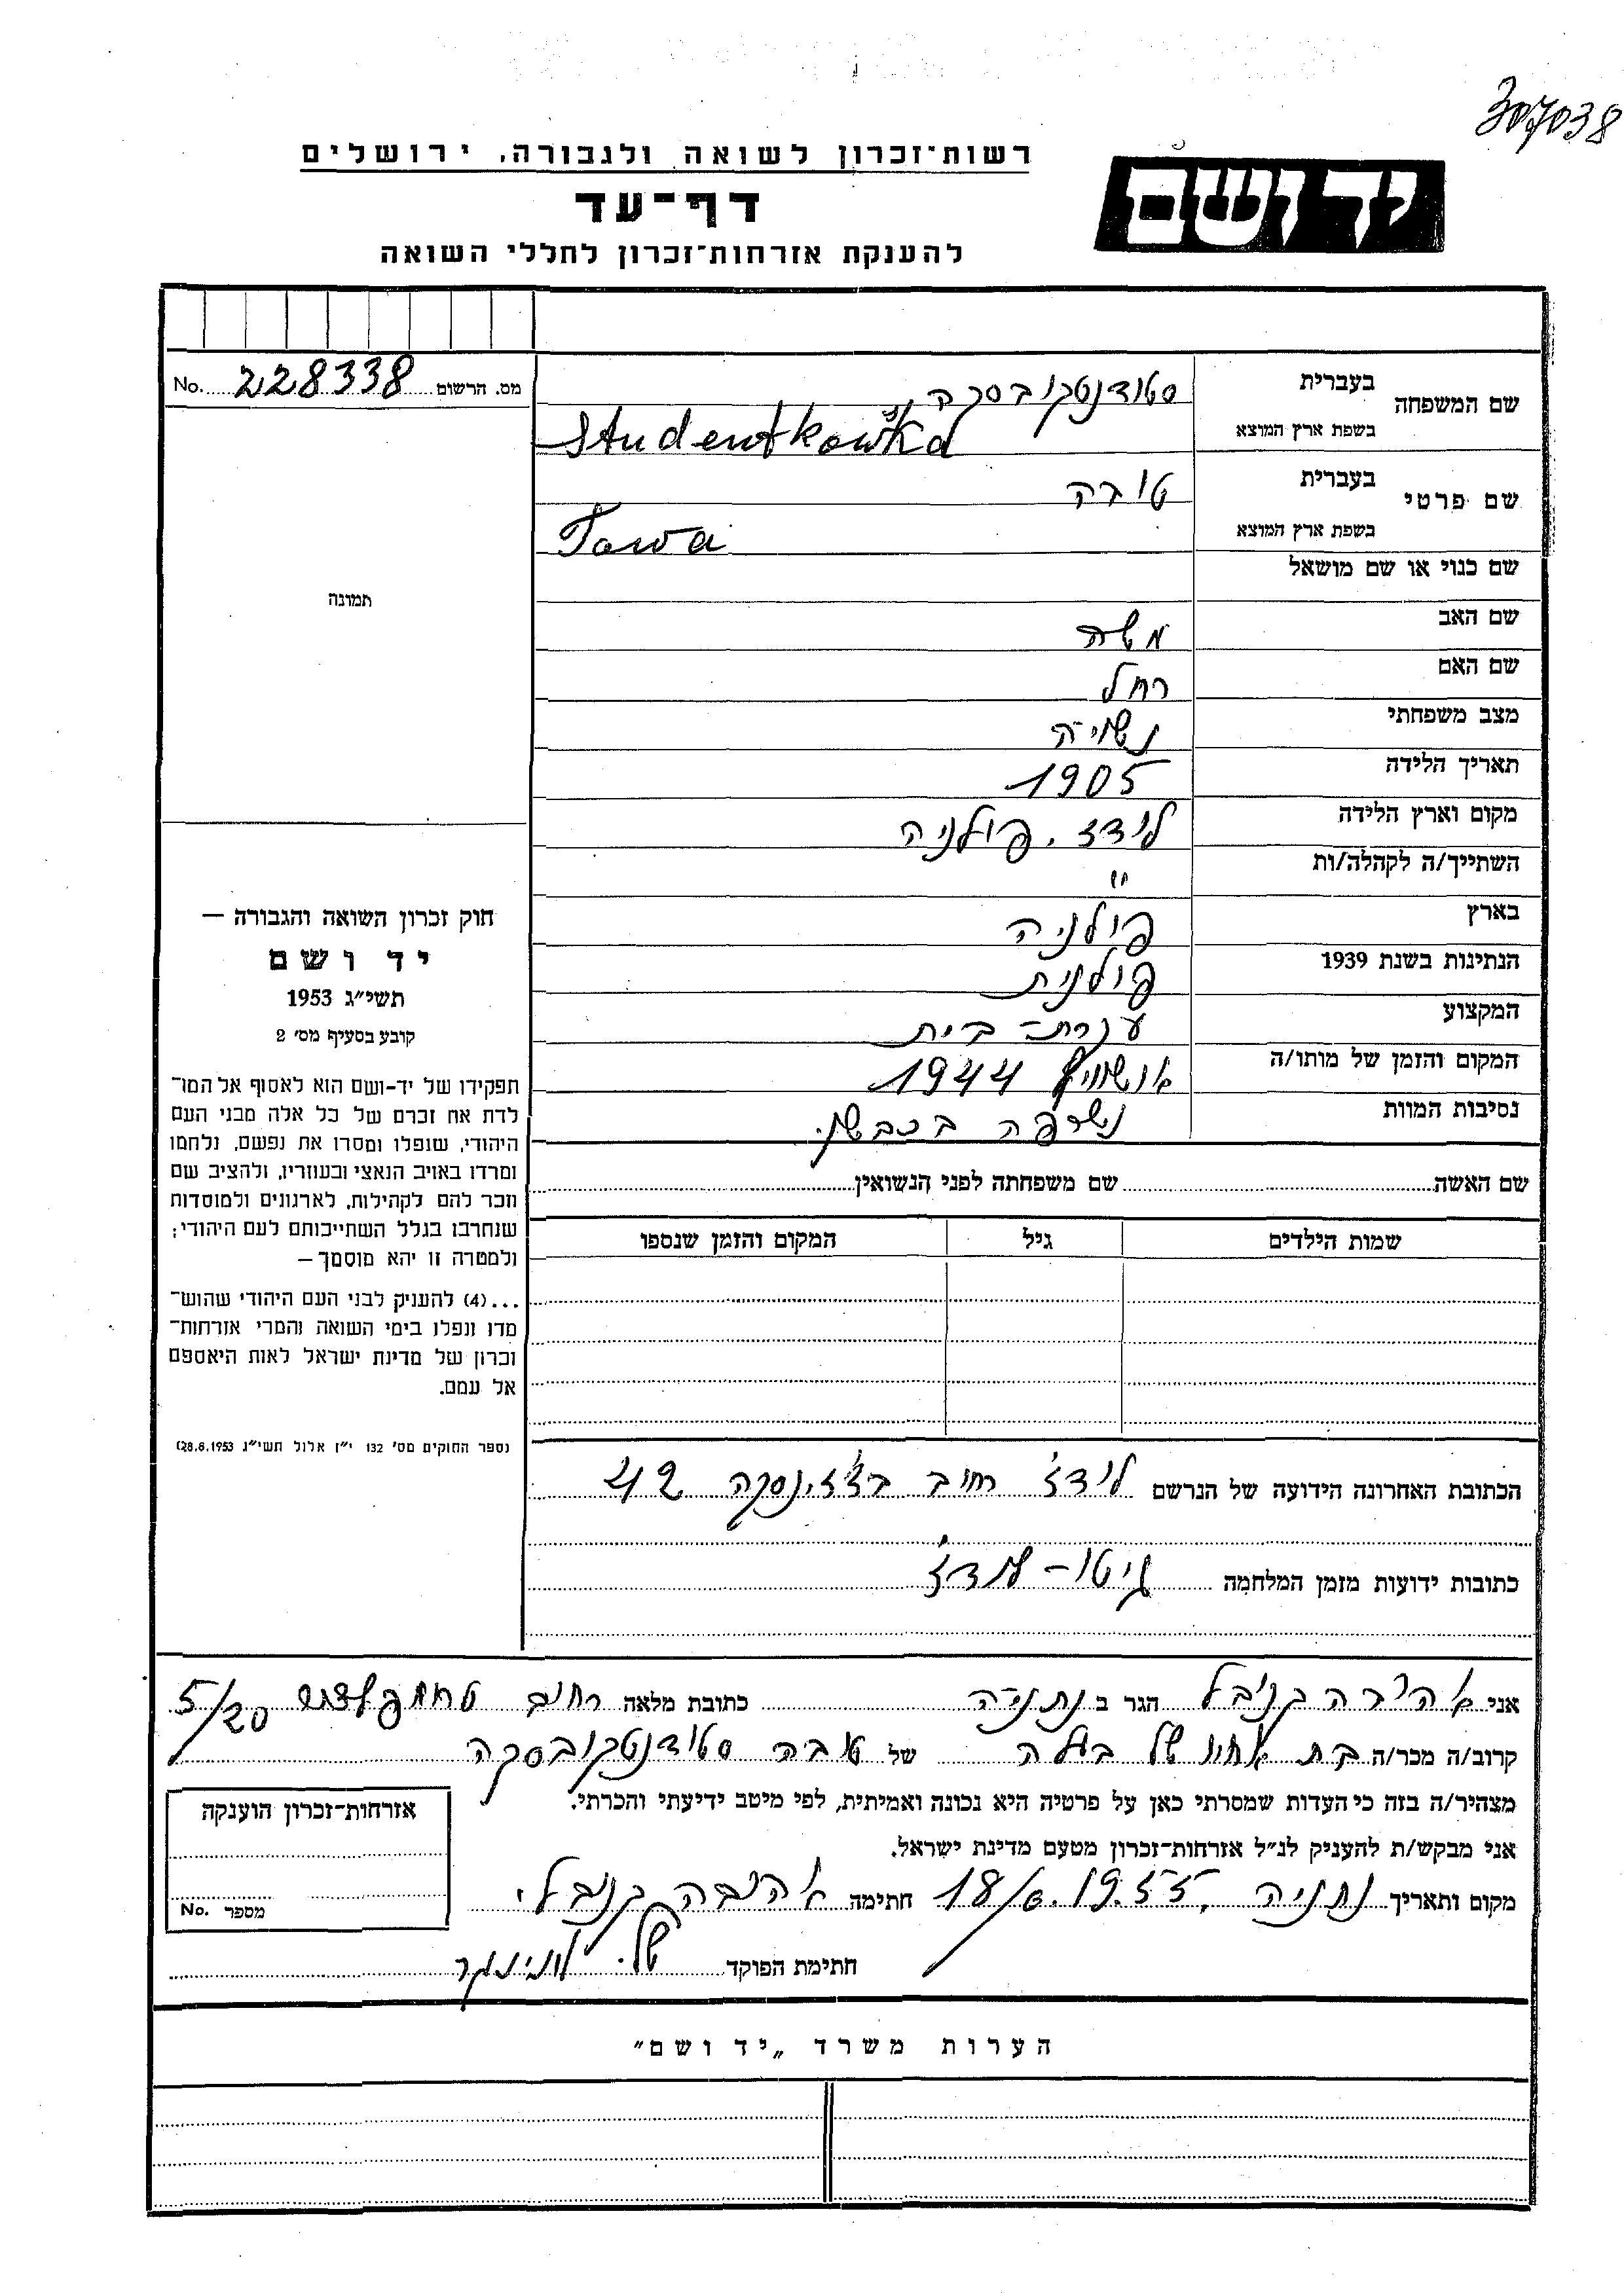 307038
יד ושם
רשות־זכרון לשואה ולגבורה, ירושלים
דף־עד
להענקת אזרחות־זכרון לחללי השואה
מס. הרשום 228338 No.
שם המשפחה בעברית סטודנטקובסקה
בשפת ארץ המוצא Studentkowska
שם פרטי בעברית טובה
בשפת ארץ המוצא Tawa
שם כנוי או שם מושאל
שם האב משה
שם האם רחל
מצב משפחתי נשויה
תאריך הלידה 1905
מקום וארץ הלידה לודז. פולניה
השתייך/ה לקהלה/ות "
בארץ פולניה
הנתינות בשנת 1939 פולנית
המקצוע עקרת-בית
המקום והזמן של מותו/ה אושוויץ 1944
נסיבות המוות נשרפה בכבשן.
שם האשה שם משפחתה לפני הנשואין
שמות הילדים גיל המקום והזמן שנספו
הכתובת האחרונה הידועה של הנרשם לודז' רחוב 42
כתובות ידועות מזמן המלחמה גיטו - לודז'
תמונה
חוק זכרון השואה והגבורה —
יד ושם
תשי"ג 1953
קובע בסעיף מס' 2
תפקידו של יד-ושם הוא לאסוף אל המו־
לדת את זכרם של כל אלה מבני העם
היהודי, שנפלו ומסרו את נפשם, נלחמו
ומרדו באויב הנאצי ובעוזריו, ולהציב שם
וזכר להם לקהילות, לארגונים ולמוסדות
שנחרבו בגלל השתייכותם לעם היהודי;
ולמטרה זו יהא מוסמך —
...(4) להעניק לבני העם היהודי שהוש־
מדו ונפלו בימי השואה והמרי אזרחות־
זכרון של מדינת ישראל לאות היאספם
אל עמם.
(ספר החוקים מס' 132 י"ז אלול תשי"ג 28.8.1953)
אני הגר ב נתניה כתובת מלאה רחוב 5/20
קרוב/ה מכר/ה בת אחיו של בעלה של טובה סטודנטקובסקה
מצהיר/ה בזה כי העדות שמסרתי כאן על פרטיה היא נכונה ואמיתית, לפי מיטב ידיעתי והכרתי.
אני מבקש/ת להעניק לנ"ל אזרחות־זכרון מטעם מדינת ישראל.
מקום ותאריך נתניה, חתימה
חתימת הפוקד
אזרחות־זכרון הוענקה
מספר No.
הערות משרד „יד ושם"